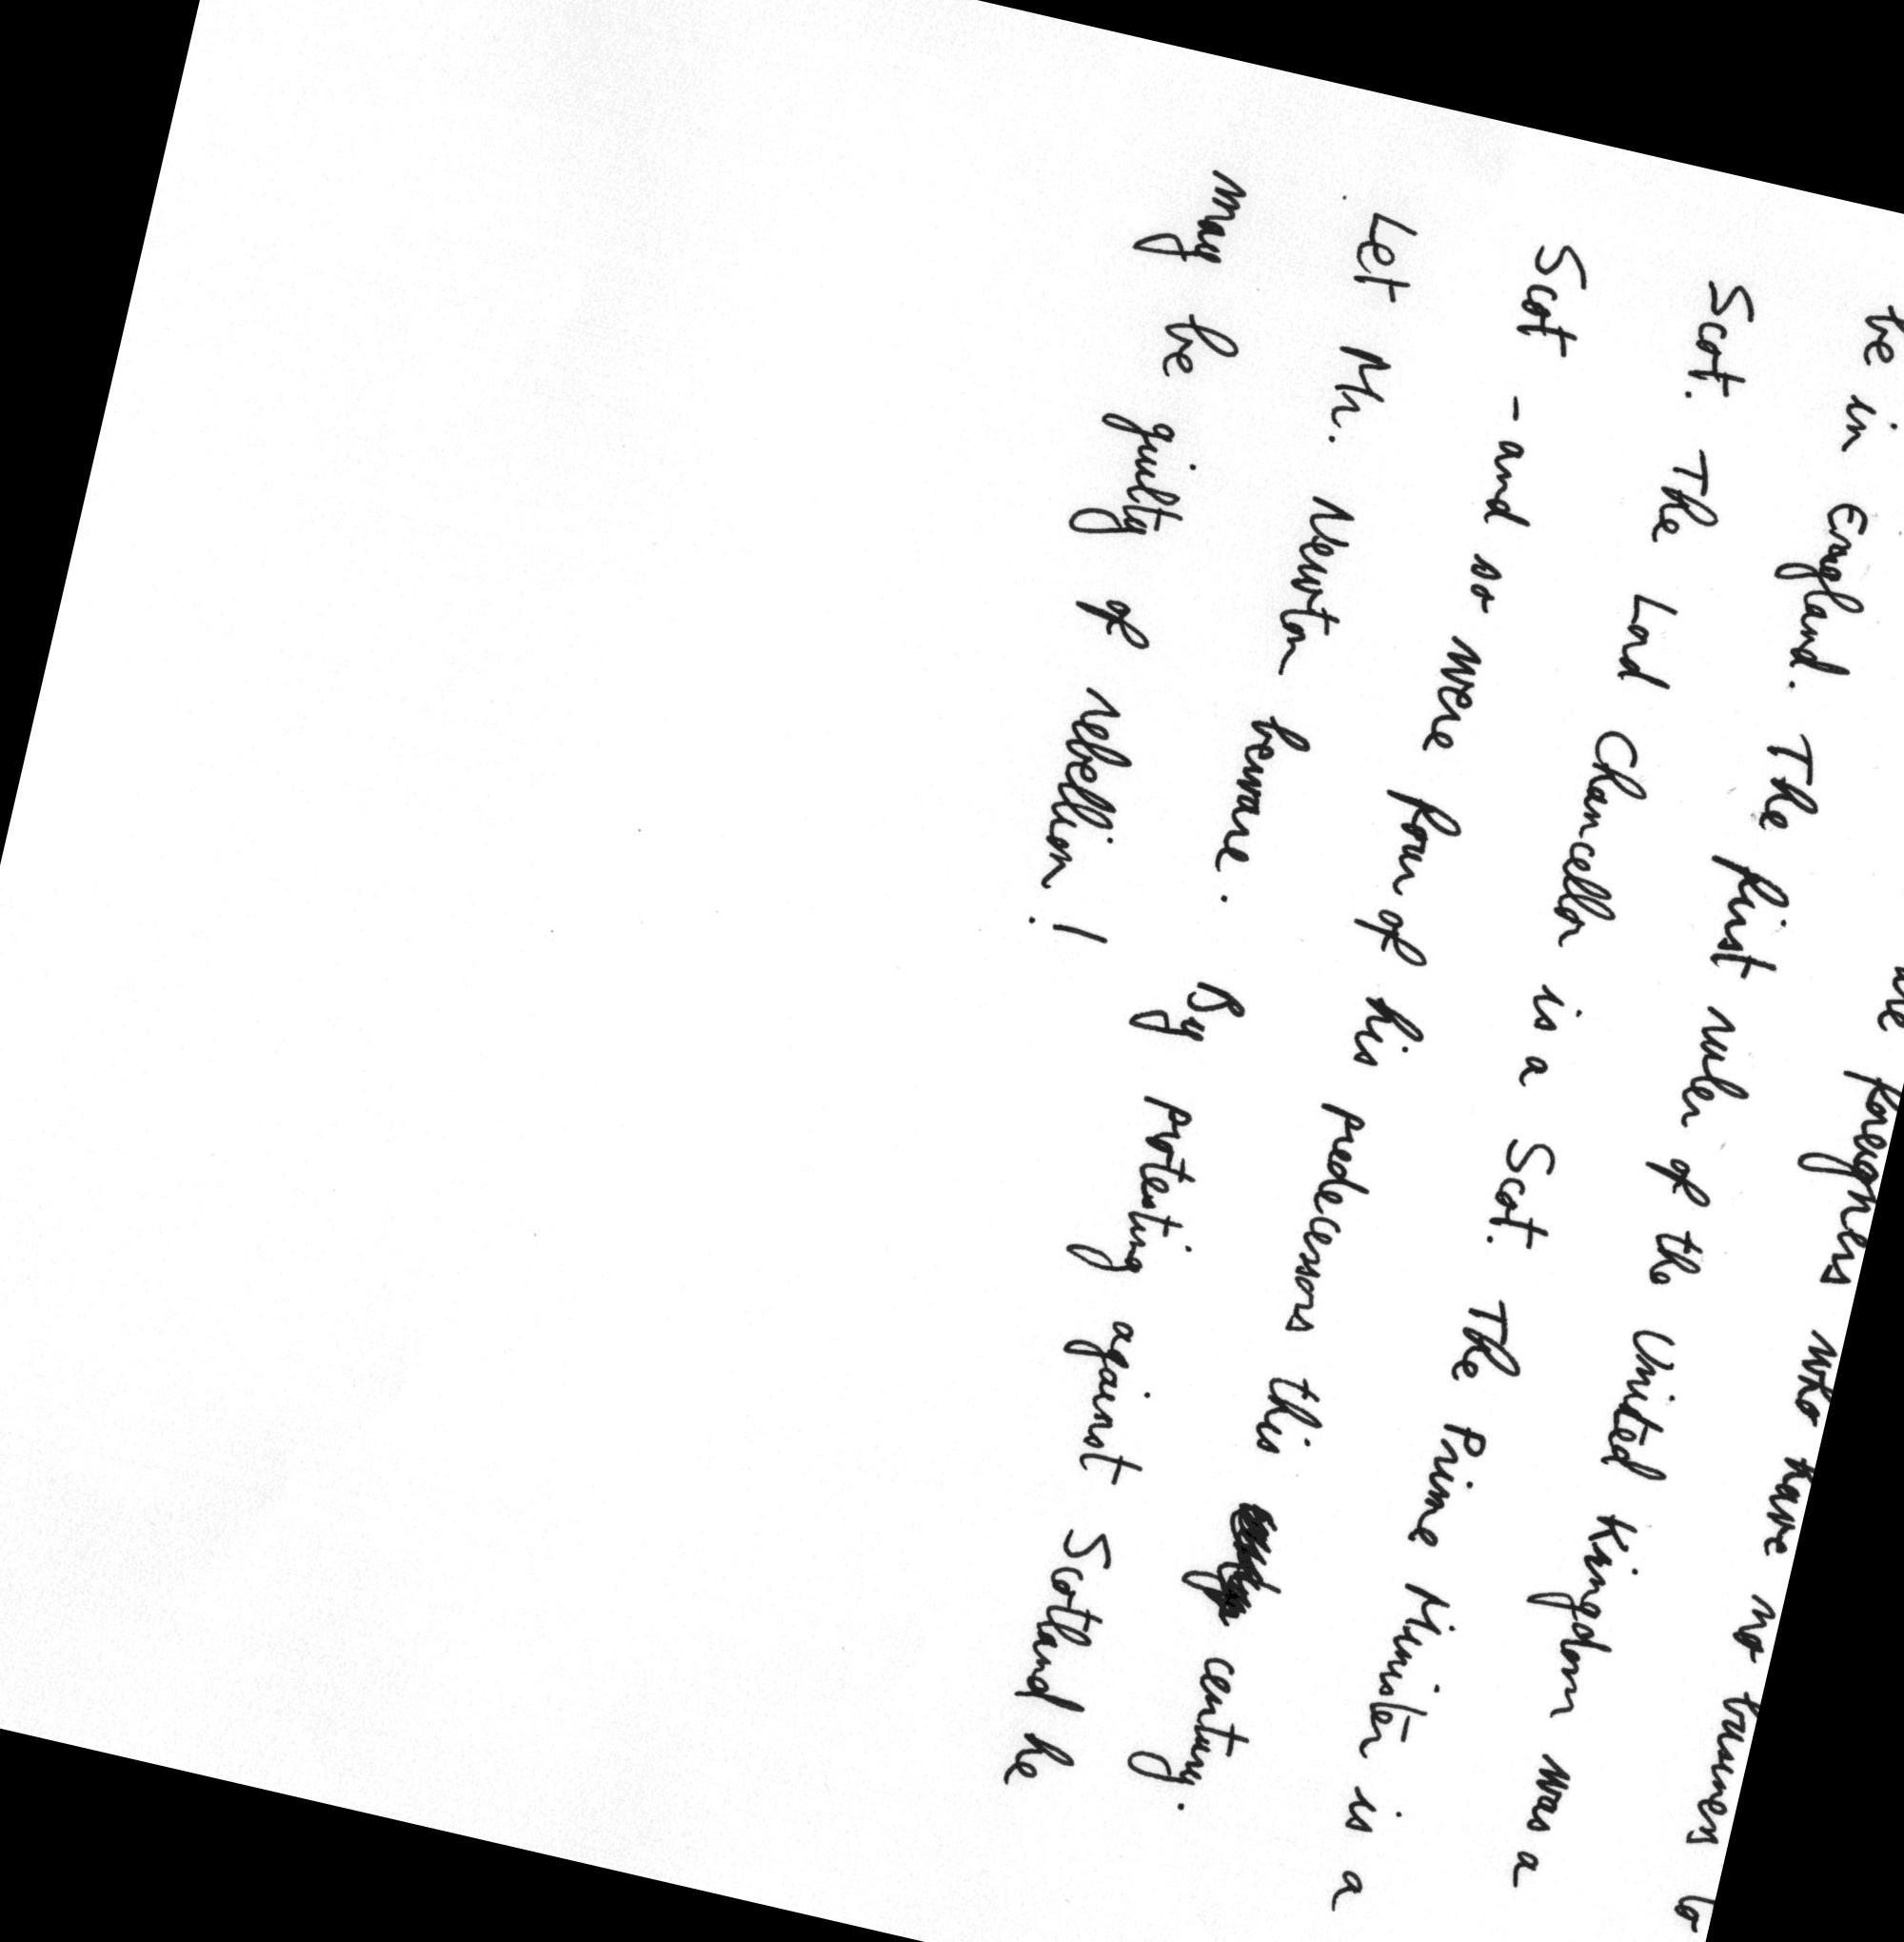 foreigners who have no business to
be in England. The first ruler of the United Kingdom was a
Scot. The Lord Chancellor is a Scot. The Prime Minister is a
Scot - and so were four of his predecessors this century.
Let Mr. Newton beware. By protesting against Scotland he
may be guilty of rebellion!